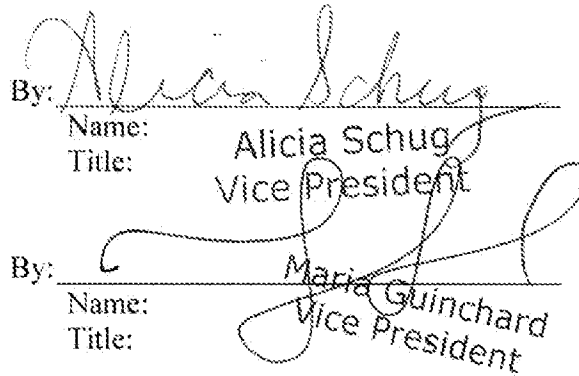 By: Alicia Schug
Name: Alicia Schug
Title: Vice President
By:
Name: Maria Guinchard
Title: Vice President